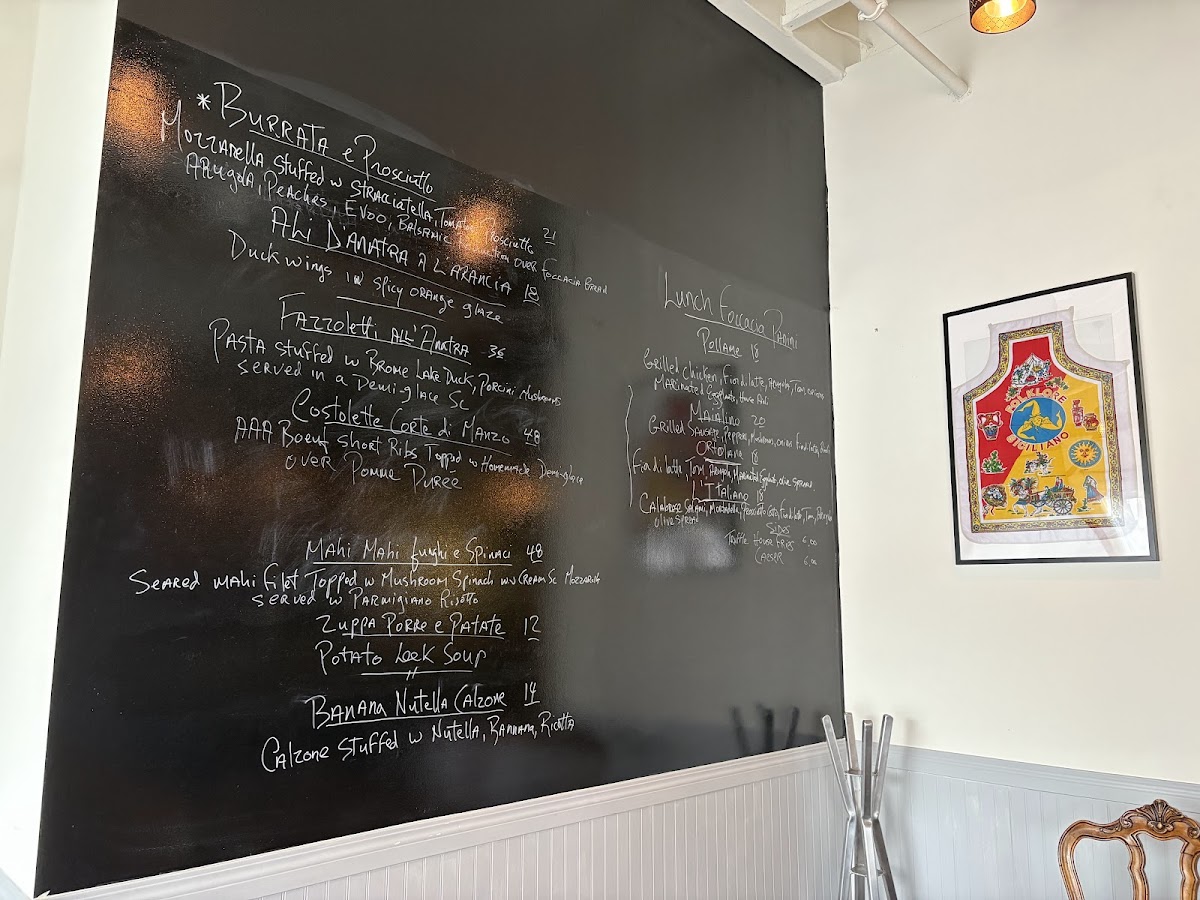 * BURRATA e Prosciutto
Mozzarella stuffed w STRACCIATELLA, Tomato, Prosciutto 21
ARugola, Peaches, EVOO, Balsamic over Foccacia Bread
Ali D'ANATRA A L'ARANCIA 18
Duck wings in spicy orange glaze
Fazzoletti ALL'ANATRA 36
PASTA stuffed w Brome Lake Duck, Porcini Mushrooms
served in a Demi-glace Sc
Costolette Corte di Manzo 48
AAA Boeuf short Ribs Topped w Homemade Demi-glace
over Pomme Purée
Mahi Mahi funghi e Spinaci 48
Seared mahi filet Topped w Mushroom Spinach CREAM Sc Mozzarella
served w Parmigiano Risotto
Zuppa Porre e Patate 12
Potato Leek Soup
Banana Nutella Calzone 14
Calzone stuffed w Nutella, Bannana, Ricotta
Lunch Foccacia Panini
Pollame 18
Grilled chicken, Fior di latte, Tom, onions
Marinated Eggplants, House Aioli
Maialino 20
Grilled Sausage, Peppers, Mushrooms, onions, Fior di latte,
Ortolana 18
Fior di latte, Tom, Marinated Eggplants, olive spread
L'Italiano 18
Calabrese Salami, Mortadella, Prosciutto Cotto, Fior di latte, Tom,
olive spread
Sides
Truffle House Fries 6.00
Caeser 6.00
FOLKLORE
SICILIANO